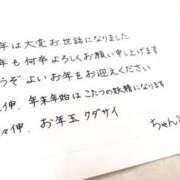 年は大変お世話になりました
年も何卒よろしくお願い申し上げます
うぞよいお年をお迎えください
伸、年末年始はこたつの妖精になります
々伸、お年玉クダサイ
ちゃん